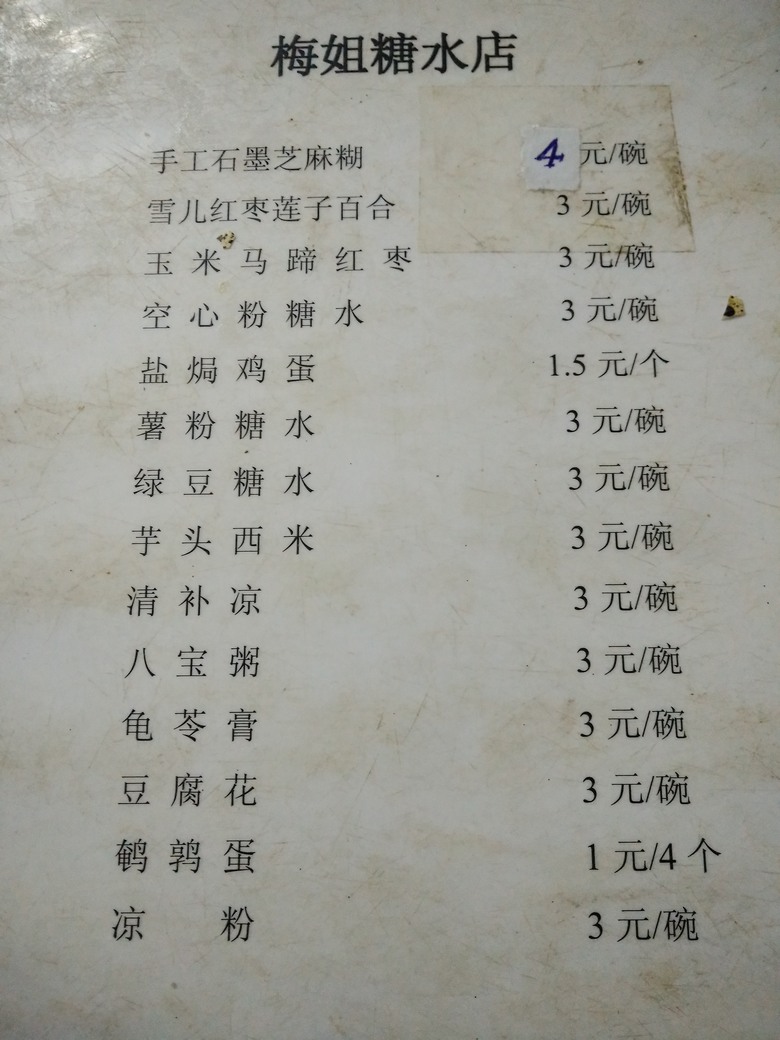 梅姐糖水店
手工石墨芝麻糊 4 元/碗
雪儿红枣莲子百合 3 元/碗
玉米马蹄红枣 3 元/碗
空心粉糖水 3 元/碗
盐焗鸡蛋 1.5 元/个
薯粉糖水 3 元/碗
绿豆糖水 3 元/碗
芋头西米 3 元/碗
清补凉 3 元/碗
八宝粥 3 元/碗
龟苓膏 3 元/碗
豆腐花 3 元/碗
鹌鹑蛋 1 元/4 个
凉粉 3 元/碗